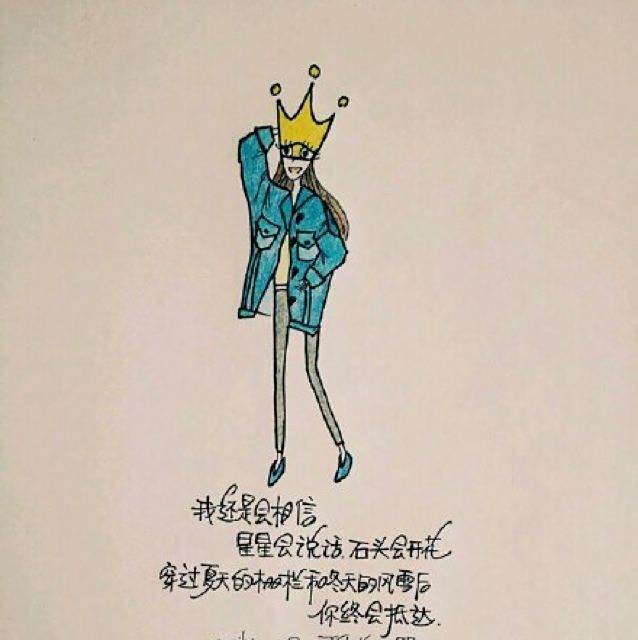 我还是会相信
星星会说话 石头会开花
穿过夏天的栅栏和冬天的风雪后
你终会抵达.